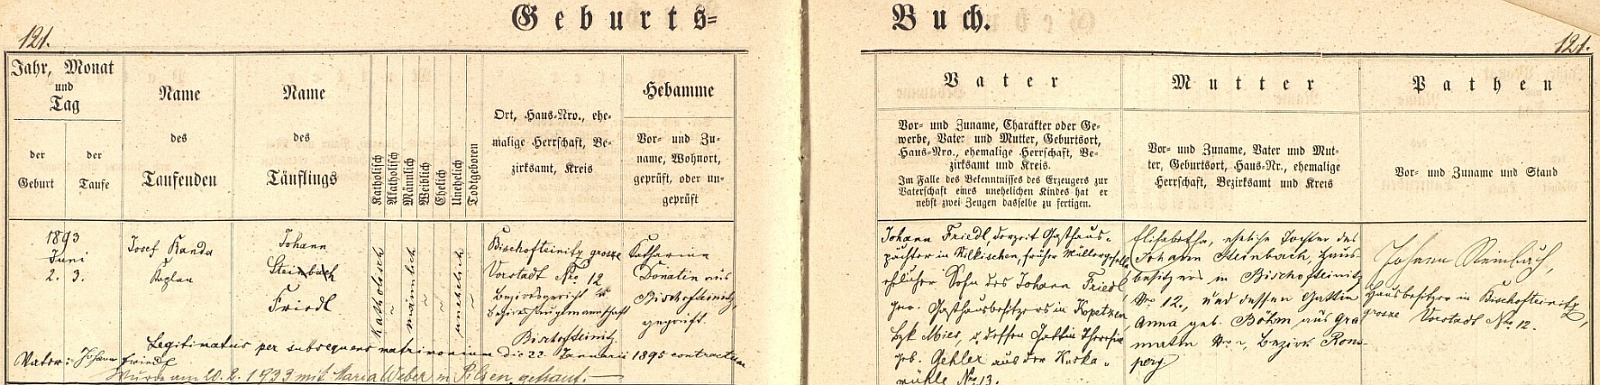 Geburts=
Buch.
121.
121.
Jahr, Monat
und
Tag
der
Geburt
der
Taufe
Name
des
Taufenden
Name
des
Täuflings
Katholisch
Akatholisch
Männlich
Weiblich
Ehelich
Unehelich
Todtgeboren
Ort, Haus-Nro., ehe-
malige Herrschaft, Be-
zirksamt, Kreis
Hebamme
Vor- und Zu-
name, Wohnort,
geprüft, oder un-
geprüft
Vater
Vor- und Zuname, Charakter oder Ge-
werbe, Vater und Mutter, Geburtsort,
Haus-Nro., ehemalige Herrschaft, Be-
zirksamt und Kreis.
Im Falle des Bekenntnisses des Erzeugers zur
Vaterschaft eines unehelichen Kindes hat er
nebst zwei Zeugen dasselbe zu fertigen.
Mutter
Vor- und Zuname, Vater und Mut-
ter, Geburtsort, Haus-Nr., ehemalige
Herrschaft, Bezirksamt und Kreis
Pathen
Vor- und Zuname und Stand
1893
Juni
2. 3.
Josef Kanda
Kaplan
Johann
Steinbach
Friedl
katholisch
männlich
unehelich
Bischofteinitz grosse
Vorstadt Nro 12
Bezirksgericht u
Bezirkshauptmannschaft
Bischofteinitz
Katharina
Donatin aus
Bischofteinitz,
geprüft.
Johann Friedl, derzeit Gasthaus-
pächter in, früher Müllergesell
ehelicher Sohn des Johann Friedl,
gew. Gasthausbesitzers in Kopetzen,
Bzk Mies, u. dessen Gattin Theresia
geb. Gehler aus der
mühle No 13.
Elisabetha, eheliche Tochter des
Johann Steinbach, Haus-
besitzers in Bischofteinitz
Nro 12, und dessen Gattin
Anna geb. Böhm aus Gra
matin No 1, Bezirk Rons-
perg
Johann Steinbach,
Hausbesitzer in Bischofteinitz,
grosse Vorstadt Nro 12.
Legitimatus per subsequens matrimonium die 22. Januarii 1895 contractum
Vater: Johann Friedl
Wurde am 20.2.1933 mit Maria Weber in Pilsen getraut.